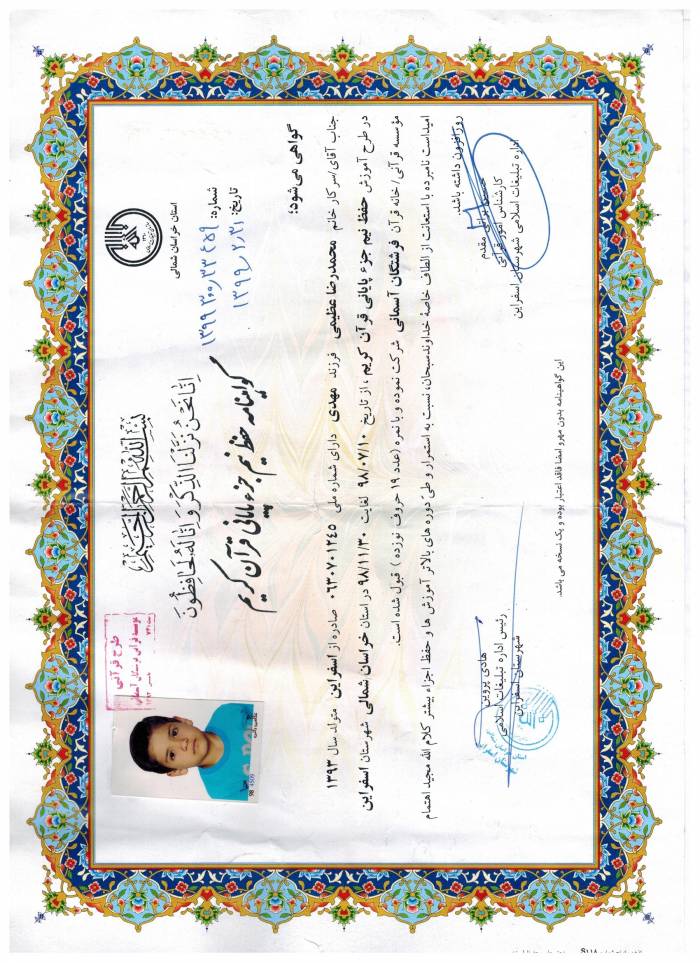 بسم الله الرحمن الرحیم
إِنَّا نَحْنُ نَزَّلْنَا الذِّكْرَ وَإِنَّا لَهُ لَحَافِظُونَ
گواهینامه حفظ نیم جزء پایانی قرآن کریم
استان خراسان شمالی
شماره: ۱۳۹۹۳۰۰/۳۳۴۵۹
تاریخ: ۱۳۹۹/۲/۳۱
طرح قرآنی
گواهی می‌شود:
جناب آقای/سرکار خانم محمدرضا عظیمی فرزند مهدی دارای شماره ملی ۰۶۳۰۷۰۱۲۴۵ صادره از اسفراین متولد سال ۱۳۹۳
در طرح آموزش حفظ نیم جزء پایانی قرآن کریم، از تاریخ ۹۸/۰۷/۱۰ لغایت ۹۸/۱۱/۳۰ در استان خراسان شمالی شهرستان اسفراین
مؤسسه قرآنی/خانه قرآن فرشتگان آسمانی شرکت نموده و با نمره (عدد ۱۹ حروف نوزده) قبول شده است.
امیداست نامبرده با استعانت از الطاف خاصهٔ خداوندسبحان، نسبت به استمرار و طیّ دوره های بالاتر آموزش ها و حفظ اجزاء بیشتر کلام الله مجید اهتمام
روزافزون داشته باشد.
مقدم
کارشناس امور قرآنی
اداره تبلیغات اسلامی شهرستان اسفراین
هادی پروین
رئیس اداره تبلیغات اسلامی
شهرستان اسفراین
این گواهینامه بدون مهر و امضا فاقد اعتبار بوده و یک نسخه می باشد.